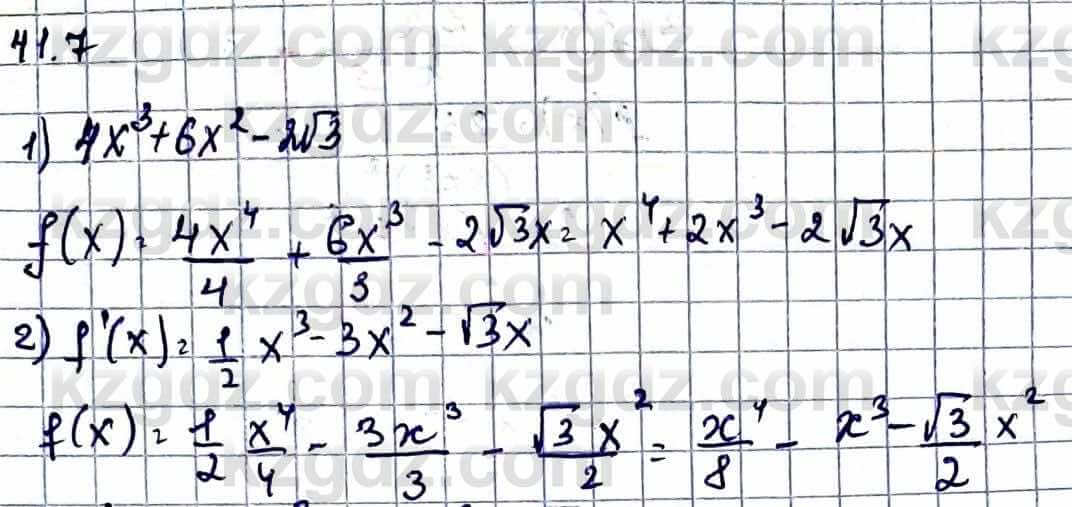 41.7
1) 4x³+6x²-2√3
f(x)= 4x⁴/4 + 6x³/3 - 2√3x= x⁴+2x³-2√3x
2) f'(x)= 1/2 x³-3x²-√3x
f(x)= 1/2 x⁴/4 - 3x³/3 - √3x²/2 = x⁴/8 - x³-√3/2 x²
kzgdz.com